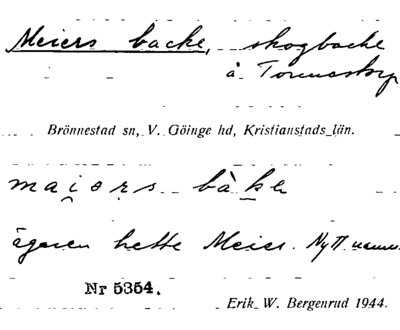 Meiers backe, skogbacke
å Tormestorp
Brönnestad sn, V. Göinge hd, Kristianstads län.
mai̯ərs bàkə
ägaren hette Meier. Nytt namn.
Nr 5354.
Erik W. Bergenrud 1944.